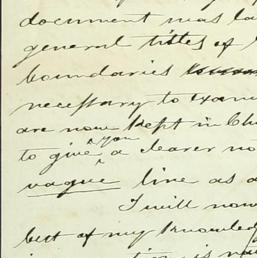 document was la
general titles of
boundaries
necessary to exam
are now kept in Ch
to give you a clearer no
vague line as a
I will now
best of my knowled